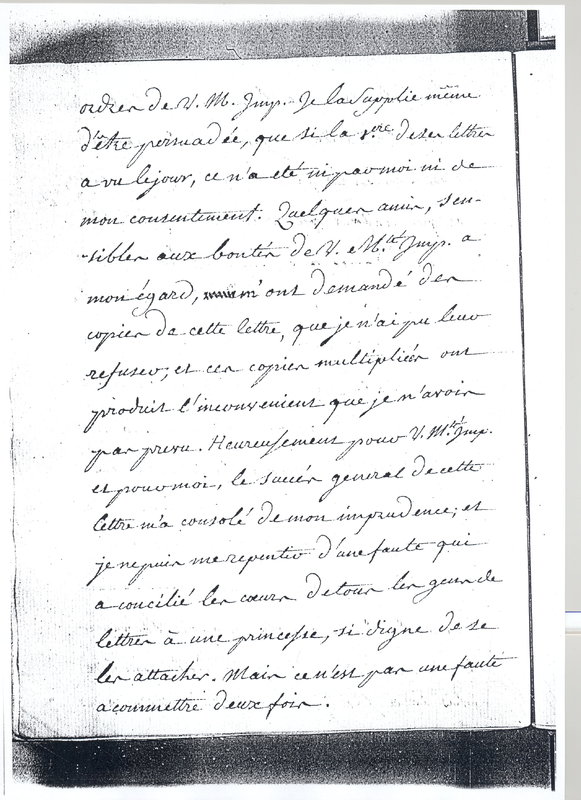 ordres de V. M. Imp. Je la Supplie même
d'être persuadée, que si la 1.ere de ses lettres
a vu le jour, ce n'a eté ni par moi ni de
mon consentement. Quelques amis, sen-
-sibles aux bontés de V. M.té Imp. a
mon égard, m'ont demandé des
copies de cette lettre, que je n'ai pu leur
refuser; et ces copies multipliées ont
produit l'inconvenient que je n'avois
pas prevu. Heureusement pour V. M.té Imp.
et pour moi, le succés general de cette
lettre m'a consolé de mon imprudence; et
je ne puis me repentir d'une faute qui
a concilié les cœurs de tous les gens de
lettres à une princesse, si digne de se
les attacher. Mais ce n'est pas une faute
a commettre deux fois.